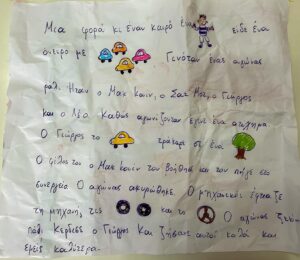 Μια φορά κι έναν καιρό ένα είδε ένα
όνειρο με Γινόταν ένας αγώνας
ράλι. Ήταν ο Μακ κουιν, ο Σαλ Γιώργος
και ο Λέο. Καθώς αγωνιζόνταν έγινε ένα ατύχημα.
Ο Γιώργος το τράκαρε σε ένα
Ο φίλος του ο Μακ κουιν τον βοήθησε και τον πήγε στο
συνεργείο Ο αγώνας ακυρώθηκε. Ο μηχανικός έφτιαξε
τη μηχανή, τις και το Ο αγώνας ξεκιν
πάλι. Κέρδισε ο Γιώργος Και ζήσανε αυτοί καλά και
εμείς καλύτερα.